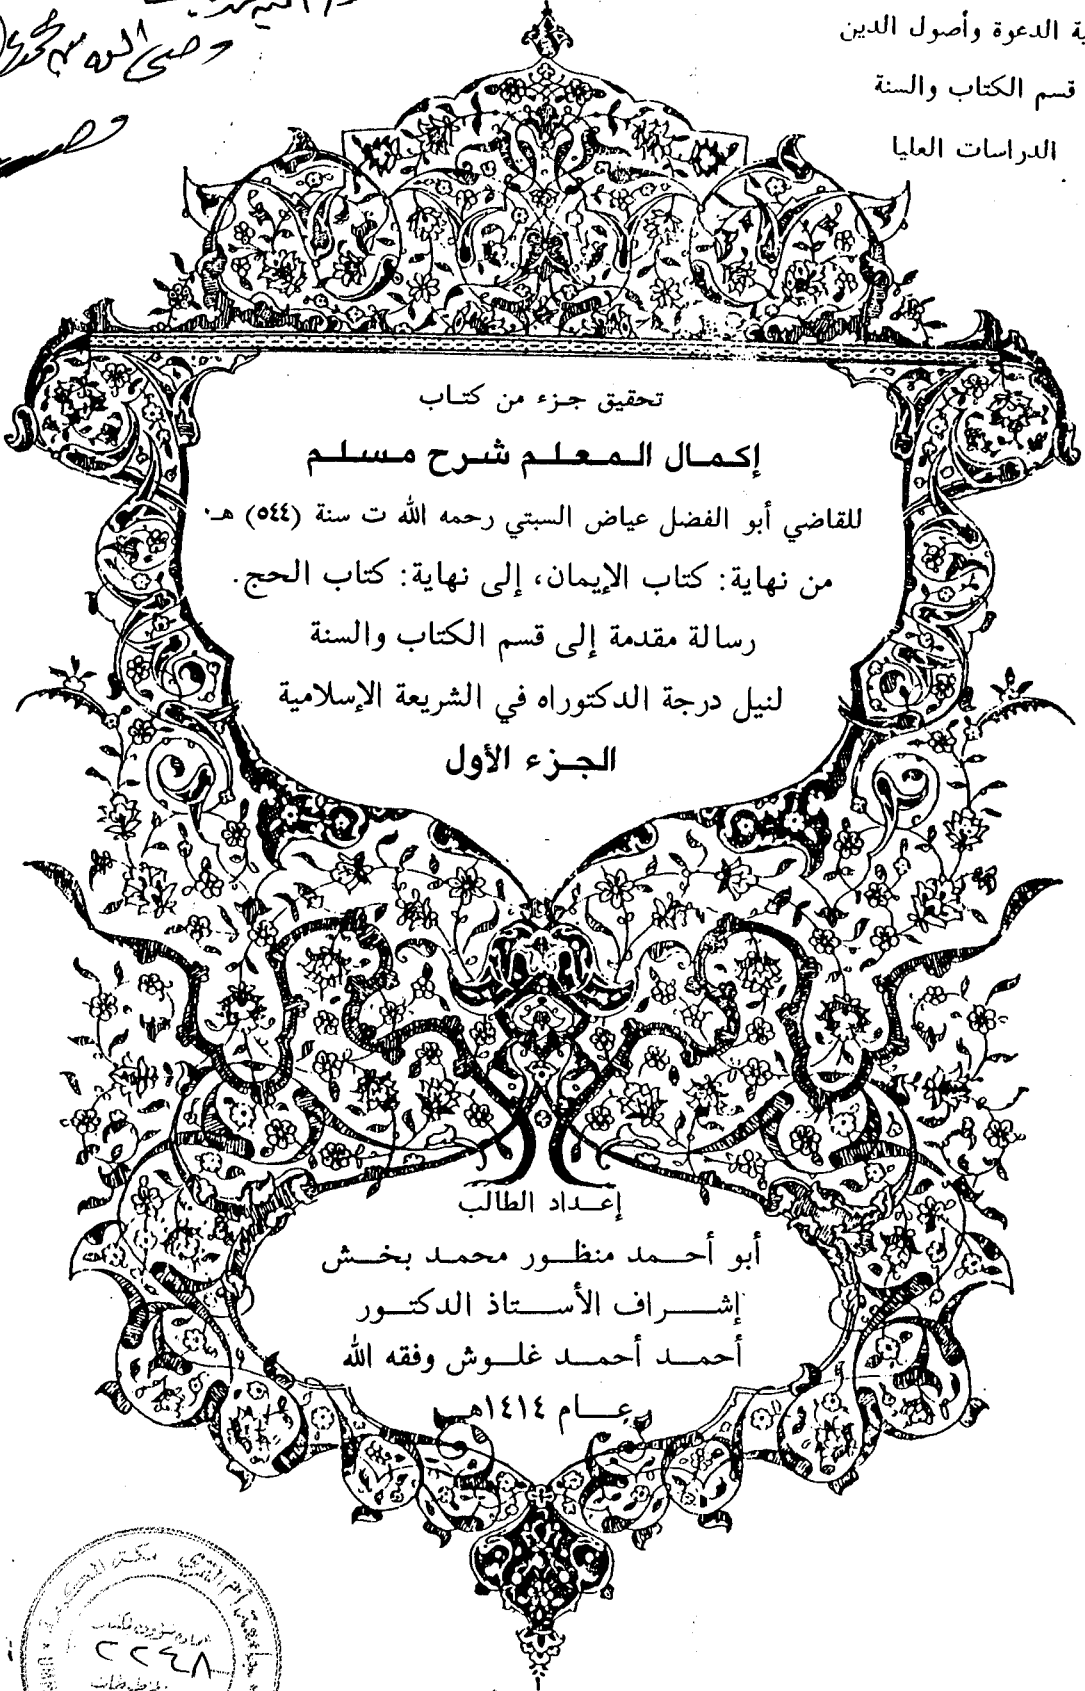 ية الدعوة وأصول الدين
قسم الكتاب والسنة
الدراسات العليا
تحقيق جـزء من كتـاب
إكـمـال الـمـعـلـم شـرح مـسـلـم
للقاضي أبو الفضل عياض السبتي رحمه الله ت سنة (٥٤٤) هـ.
من نهاية: كتاب الإيمان، إلى نهاية: كتاب الحج.
رسالة مقدمة إلى قسم الكتاب والسنة
لنيل درجة الدكتوراه في الشريعة الإسلامية
الجـزء الأول
إعــداد الطالب
أبو أحــمـد منظــور محمـد بخــش
إشـــراف الأســـتاذ الدكتــور
أحمــد أحمــد غلــوش وفقه الله
عــــام ١٤١٤هـ
جامعة أم القرى مكة المكرمة
٢٢٤٨